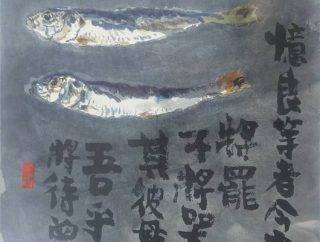 憶良等者今
将罷
子将哭
其彼母
吾乎
将待